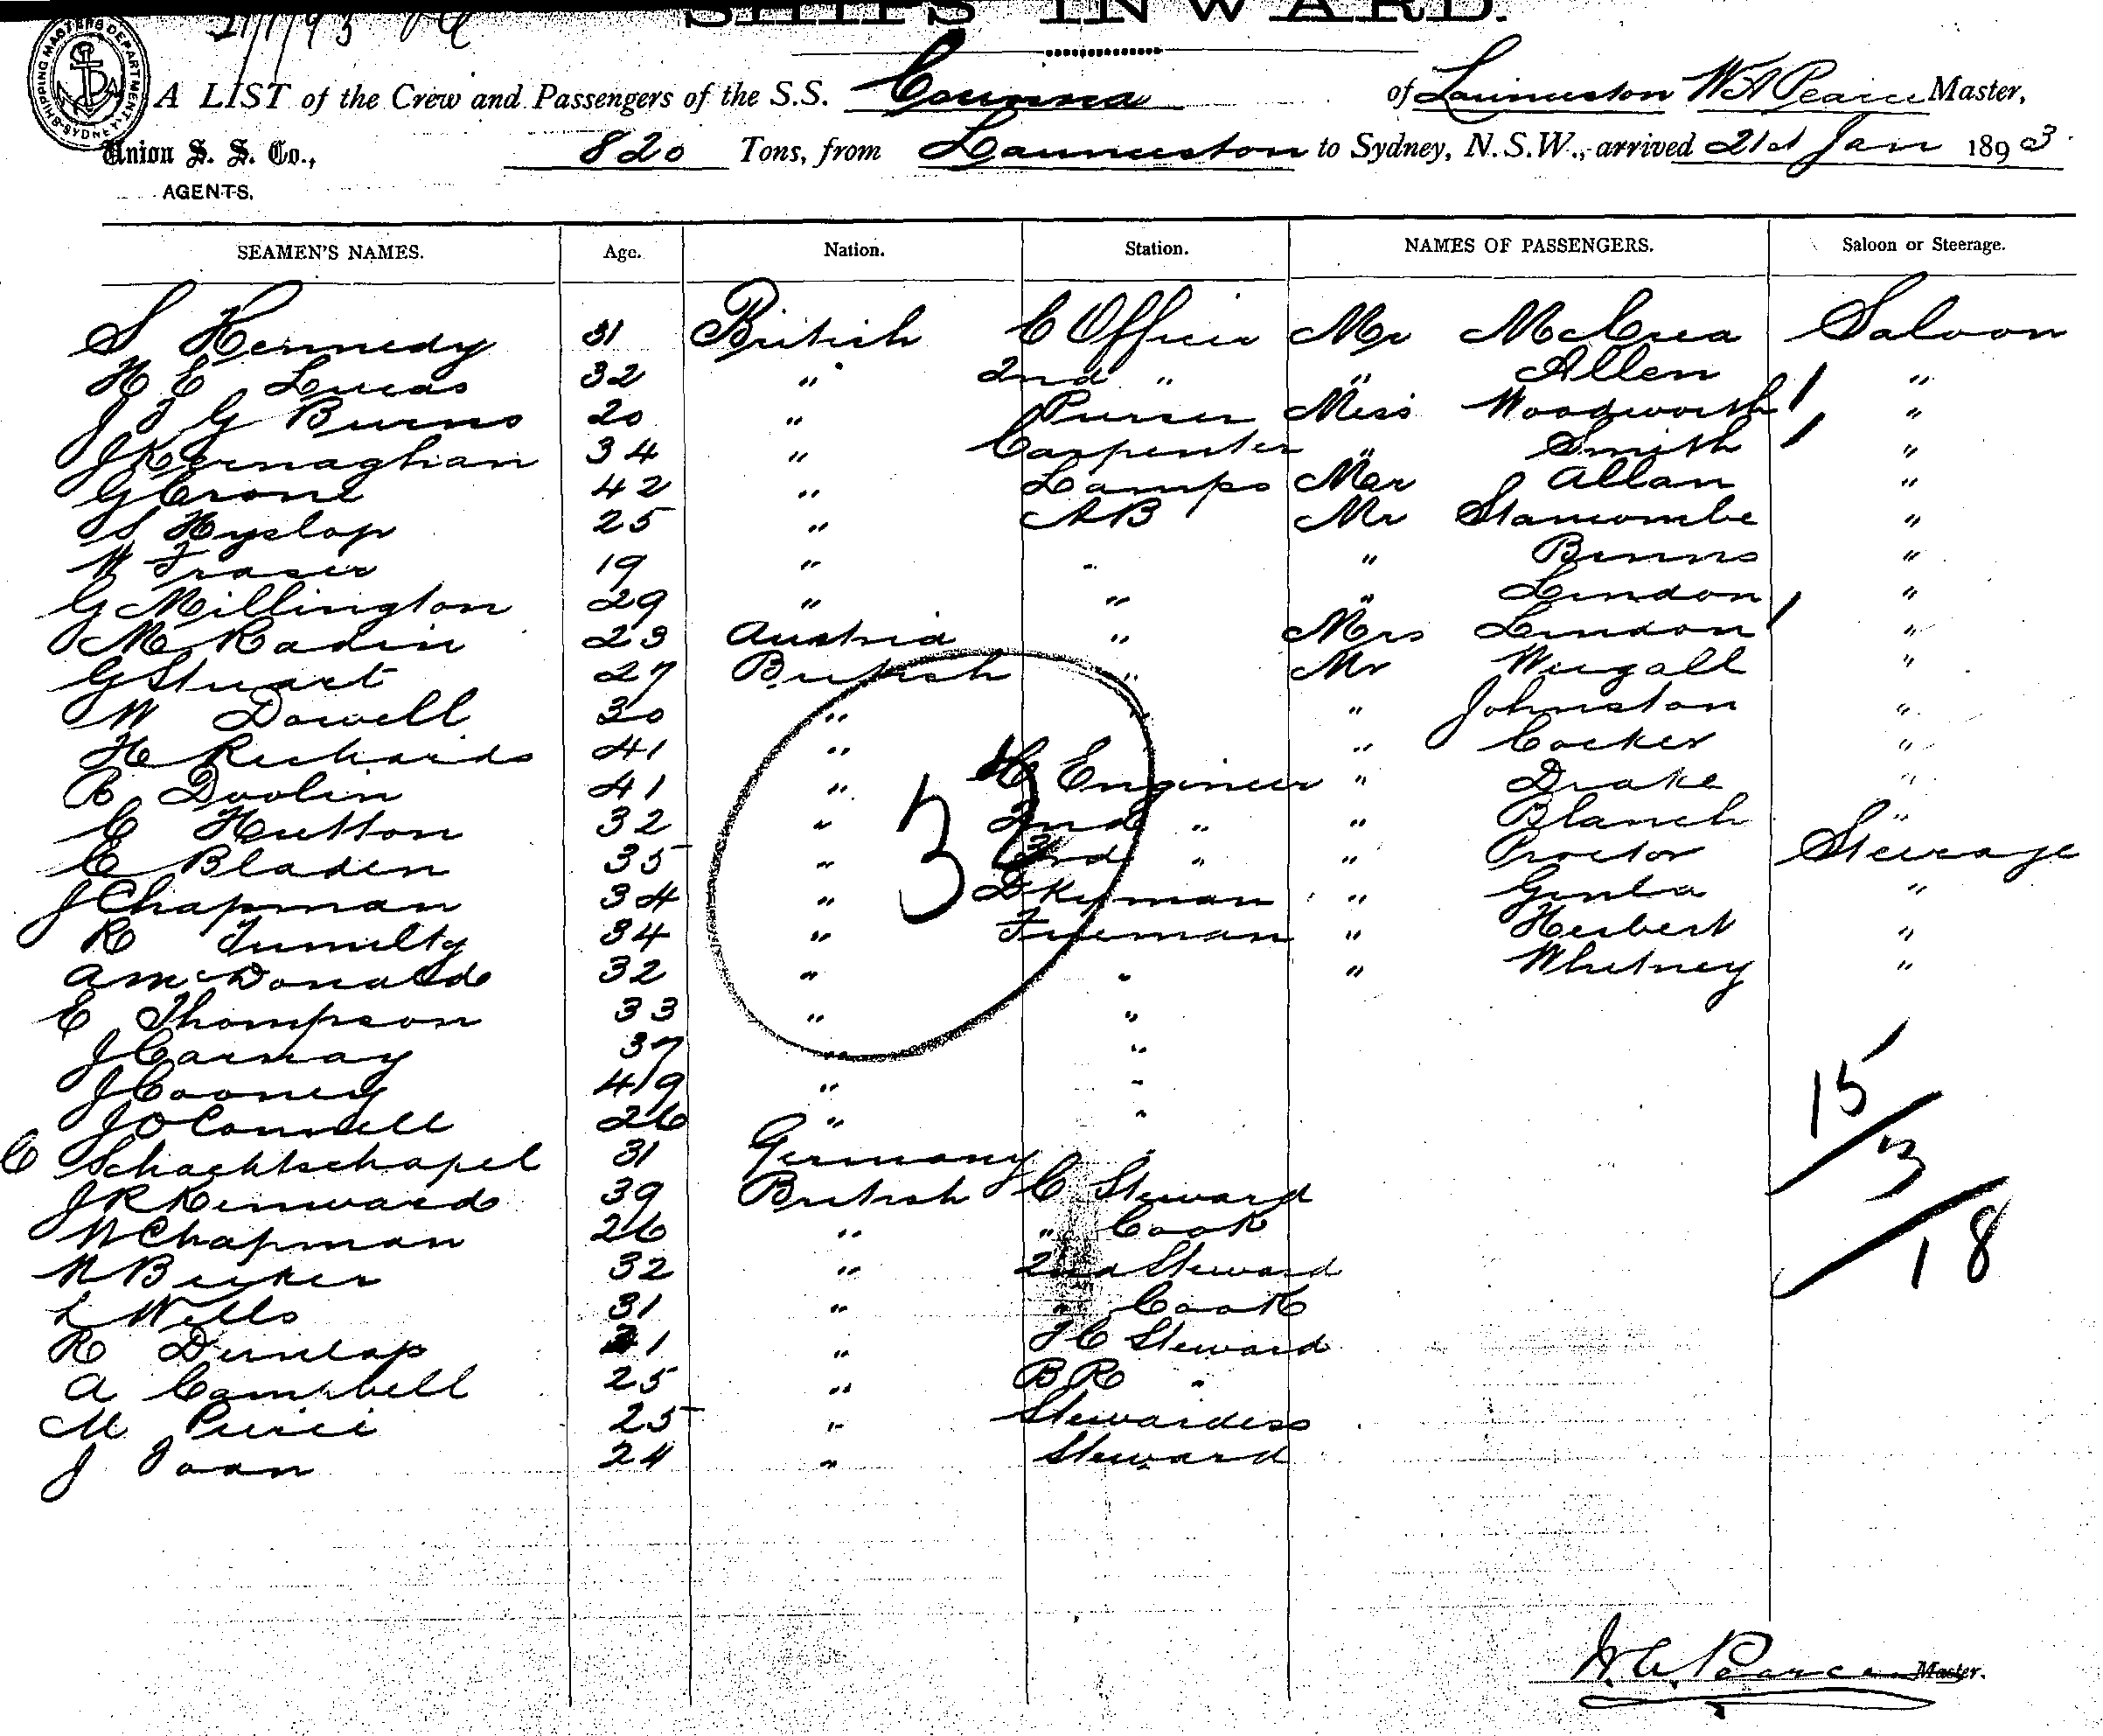 21/1/93
SHIPS INWARD.
SHIPPING MASTERS DEPARTMENT SYDNEY
A LIST of the Crew and Passengers of the S.S. Corinna of Launceston W A Pearce Master,
Union S. S. Co., 820 Tons, from Launceston to Sydney, N.S.W., arrived 21st Jan 1893
AGENTS.
SEAMEN'S NAMES. Age. Nation. Station. NAMES OF PASSENGERS. Saloon or Steerage.
S Kennedy 31 British C Officer Mr McCrea Saloon
H E Lucas 32 " 2nd " " Allen "
J T G Burns 20 " Purser Miss Woodworth "
J Kernaghan 34 " Carpenter " Smith "
G Crone 42 " Lamps Mar Allan "
S Hyslop 25 " AB Mr Stancombe "
W Fraser 19 " " " Binns "
G Millington 29 " " " Lindon "
M Radin 23 Austria " Mrs Lindon "
G Stuart 27 British " Mr Weigall "
W Dowell 30 " " Johnston "
H Richards 41 " " Cocker "
B Doolin 41 " C Engineer " Drake "
C Hutton 32 " 2nd " " Blanch "
C Bladen 35 " 3rd " " Proctor Steerage
J Chapman 34 " Dkyman " "
R Tumilty 34 " Fireman " Herbert "
A McDonald 32 " " " Whitney "
E Thompson 33 " "
J Carnay 37 " "
J Cooney 49 " "
J O Connell 26 " "
C Schachtschapel 31 Germany "
J R Kenward 39 British C Steward
W Chapman 26 " " Cook
N Becker 32 " 2nd Steward
L Wells 31 " " Cook
R Dunlap 21 " F C Steward
A Campbell 25 " B R "
M Peirce 25 " Stewardess
J Foan 24 " Steward
3
15
3
18
W. A. Pearce Master.